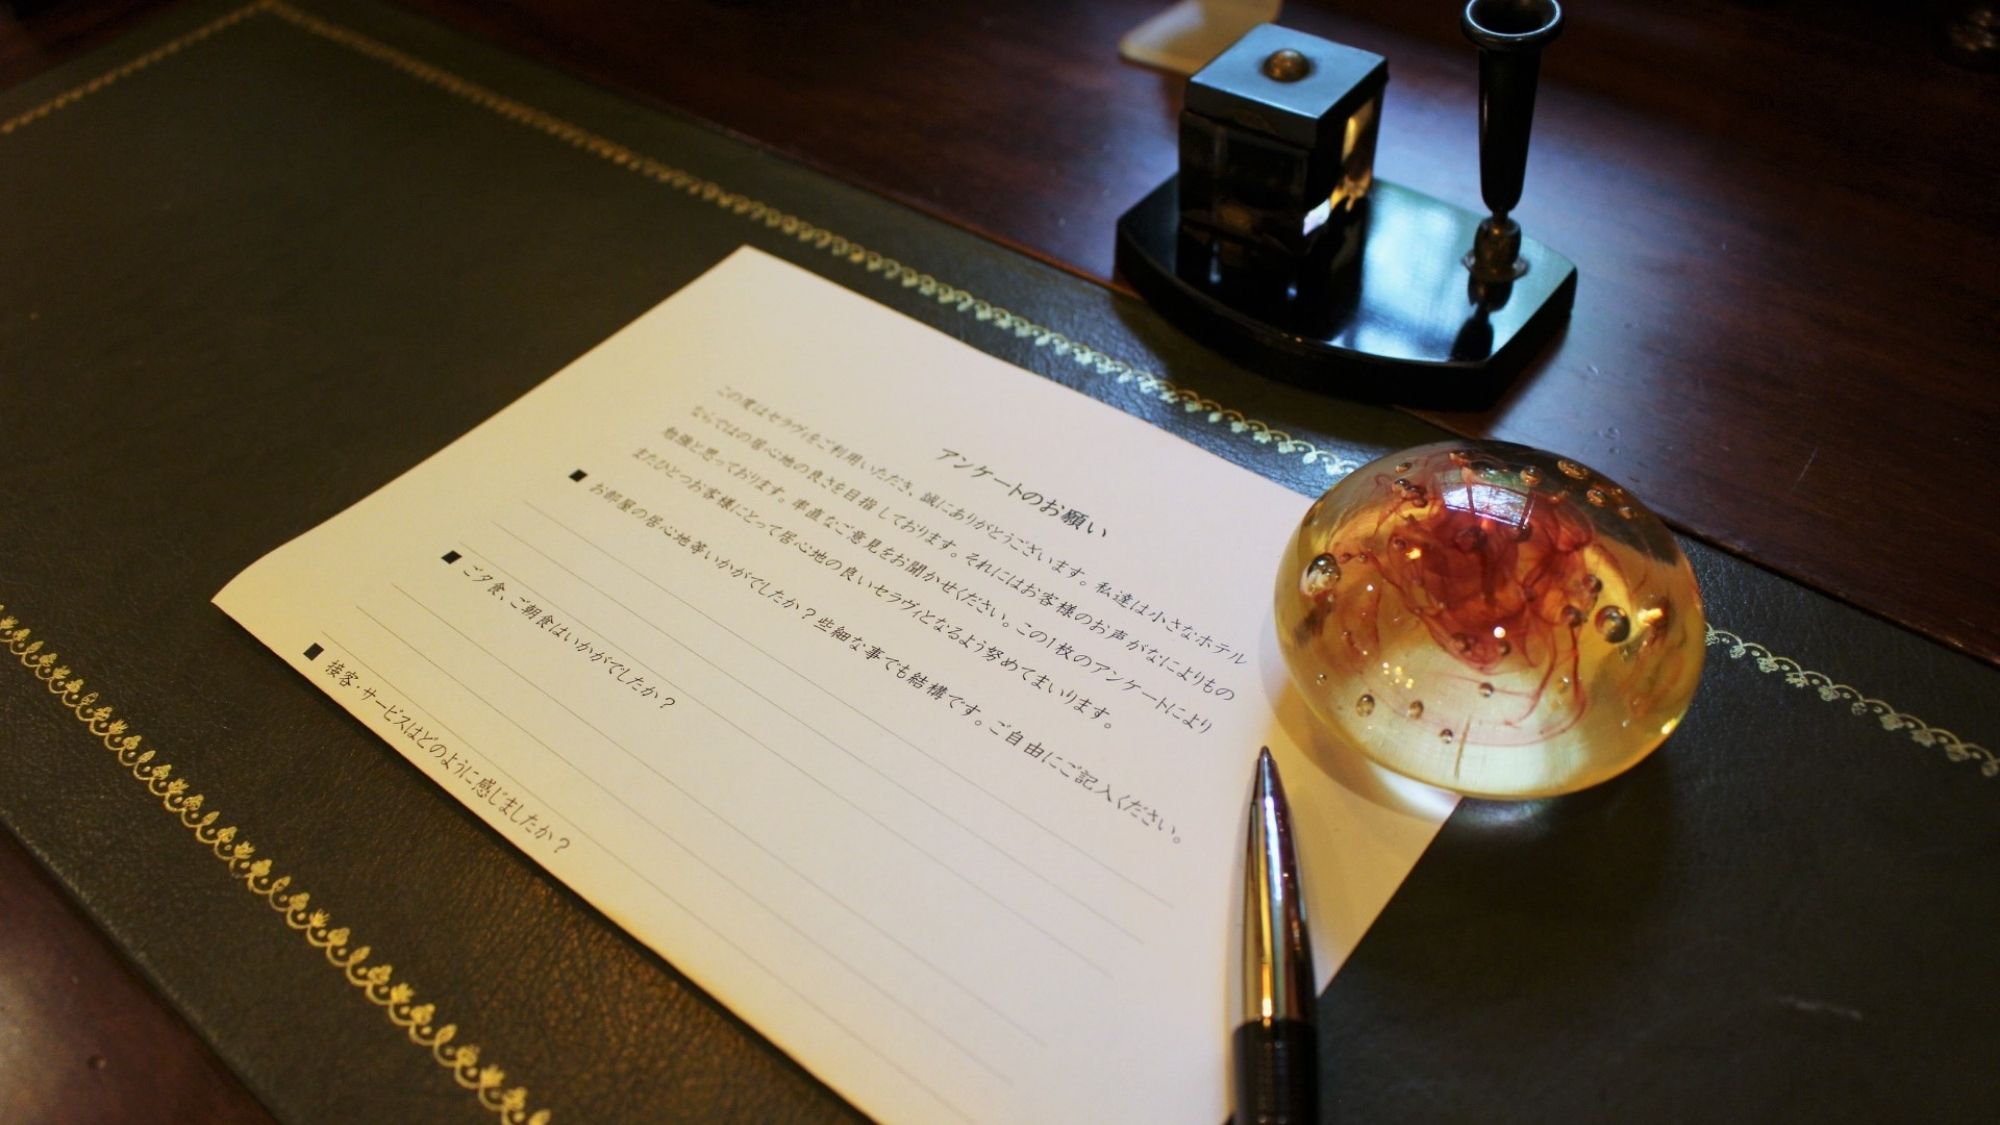 アンケートのお願い
この度はセラヴィをご利用いただき、誠にありがとうございます。私達は小さなホテル
ならではの居心地の良さを目指しております。それにはお客様のお声がなによりもの
勉強と思っております。率直なご意見をお聞かせください。この1枚のアンケートにより
またひとつお客様にとって居心地の良いセラヴィとなるよう努めてまいります。
■ お部屋の居心地等いかがでしたか？些細な事でも結構です。ご自由にご記入ください。
■ ご夕食、ご朝食はいかがでしたか？
■ 接客・サービスはどのように感じましたか？